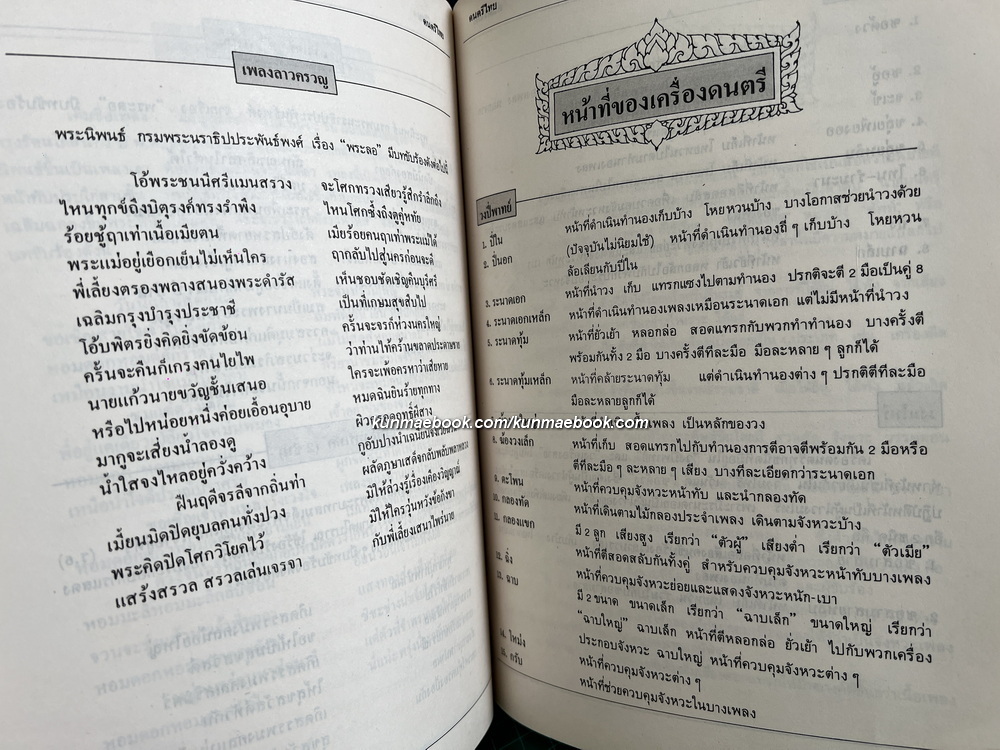 ดนตรีไทย
เพลงลาวครวญ
พระนิพนธ์ กรมพระนราธิปประพันธ์พงศ์ เรื่อง “พระลอ” มีบทขับร้องดังต่อไปนี้
โอ้พระชนนีศรีแมนสรวง จะโศกทรวงเสียวรู้สึกรำลึกถึง
ไหนทุกข์ถึงบิตุรงค์ทรงรำพึง ไหนโศกซึ้งถึงคู่หทัย
ร้อยชู้ฤาเท่าเนื้อเมียตน เมียร้อยคนฤาเท่าพระแม่ได้
พระแม่อยู่เยือกเย็นไม่เห็นใคร ฤากลับไปสู่นครก่อนจะดี
พี่เลี้ยงตรองพลางสนองพระดำรัส เห็นชอบชัดเชิญคืนบุรีศรี
เฉลิมกรุงบำรุงประชาชี เป็นที่เกษมสุขสืบไป
โอ้บพิตรยิ่งคิดยิ่งขัดข้อน ครั้นจะจรก็ห่วงนครใหญ่
ครั้นจะคืนก็เกรงคนไยไพ ว่าท่านไท้คร้ามขลาดประดาษชาย
นายแก้วนายขวัญชั้นเสนอ ใครจะเพ้อครหาว่าเสียหาย
หรือไปหน่อยหนึ่งค่อยเอื้อนอุบาย หมดฉินยินร้ายทุกทาง
มากูจะเสี่ยงน้ำลองดู
น้ำใสจงไหลอยู่คว้างคว้าง กูอับปางน้ำเฉนียน
ฝืนฤดีจรลีจากถิ่นท่า
เมี้ยนมิดปิดยุบลคนทั้งปวง มิให้ล่วงรู้เรื่องเคืองวิญญาณ์
พระคิดปิดโศกวิโยคไว้ มิให้ใครวุ่นหวังข้อกังขา
แสร้งสรวล สรวลเล่นเจรจา กับพี่เลี้ยงเสนาไพร่นาย
ดนตรีไทย
หน้าที่ของเครื่องดนตรี
วงปี่พาทย์
1. ปี่ใน หน้าที่ดำเนินทำนองเก็บบ้าง โหยหวนบ้าง บางโอกาสช่วยนำวงด้วย
2. ปี่นอก (ปัจจุบันไม่นิยมใช้) หน้าที่ดำเนินทำนองถี่ ๆ เก็บบ้าง โหยหวน
ล้อเลียนกับปี่ใน
3. ระนาดเอก หน้าที่นำวง เก็บ แทรกแซงไปตามทำนอง ปรกติจะตี 2 มือเป็นคู่ 8
4. ระนาดเอกเหล็ก หน้าที่ดำเนินทำนองเพลงเหมือนระนาดเอก แต่ไม่มีหน้าที่นำวง
5. ระนาดทุ้ม หน้าที่ยั่วเย้า หลอกล่อ สอดแทรกกับพวกทำทำนอง บางครั้งตี
พร้อมกันทั้ง 2 มือ บางครั้งตีทีละมือ มือละหลาย ๆ ลูกก็ได้
6. ระนาดทุ้มเหล็ก หน้าที่คล้ายระนาดทุ้ม แต่ดำเนินทำนองต่าง ๆ ปรกติตีทีละมือ
มือละหลายลูกก็ได้
kunmaebook.com/kunmaebook.com
เพลง เป็นหลักของวง
8. ฆ้องวงเล็ก หน้าที่เก็บ สอดแทรกไปกับทำนองการตีอาจตีพร้อมกัน 2 มือหรือ
ตีทีละมือ ๆ ละหลาย ๆ เสียง บางทีละเอียดกว่าระนาดเอก
9. ตะโพน หน้าที่ควบคุมจังหวะหน้าทับ และนำกลองทัด
10. กลองทัด หน้าที่เดินตามไม้กลองประจำเพลง เดินตามจังหวะบ้าง
11. กลองแขก มี 2 ลูก เสียงสูง เรียกว่า “ตัวผู้” เสียงต่ำ เรียกว่า “ตัวเมีย”
หน้าที่ตีสอดสลับกันทั้งคู่ สำหรับควบคุมจังหวะหน้าทับบางเพลง
12. ฉิ่ง หน้าที่ควบคุมจังหวะย่อยและแสดงจังหวะหนัก-เบา
13. ฉาบ มี 2 ขนาด ขนาดเล็ก เรียกว่า “ฉาบเล็ก” ขนาดใหญ่ เรียกว่า
“ฉาบใหญ่” ฉาบเล็ก หน้าที่ตีหลอกล่อ ยั่วเย้า ไปกับพวกเครื่อง
ประกอบจังหวะ ฉาบใหญ่ หน้าที่ควบคุมจังหวะต่าง ๆ
14. โหม่ง หน้าที่ควบคุมจังหวะต่าง ๆ
15. กรับ หน้าที่ช่วยควบคุมจังหวะในบางเพลง